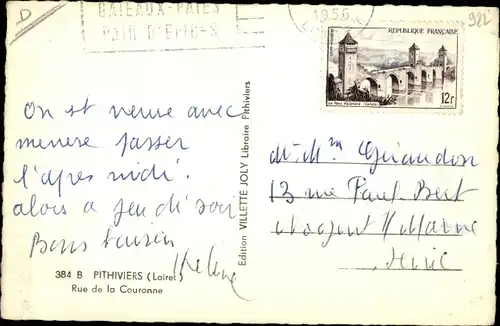 D
GATEAUX-PATES
PAIN D'EPICES
1956
982
REPUBLIQUE FRANÇAISE
12f
On est venue avec
passer
l'après midi.
alors a jeudi soir
Bons baisers
Hélène
384 B PITHIVIERS (Loiret)
Rue de la Couronne
Edition VILLETTE JOLY Libraire Pithiviers
M. Mme
13 rue Paul Bert
Nogent s/ Marne
Seine